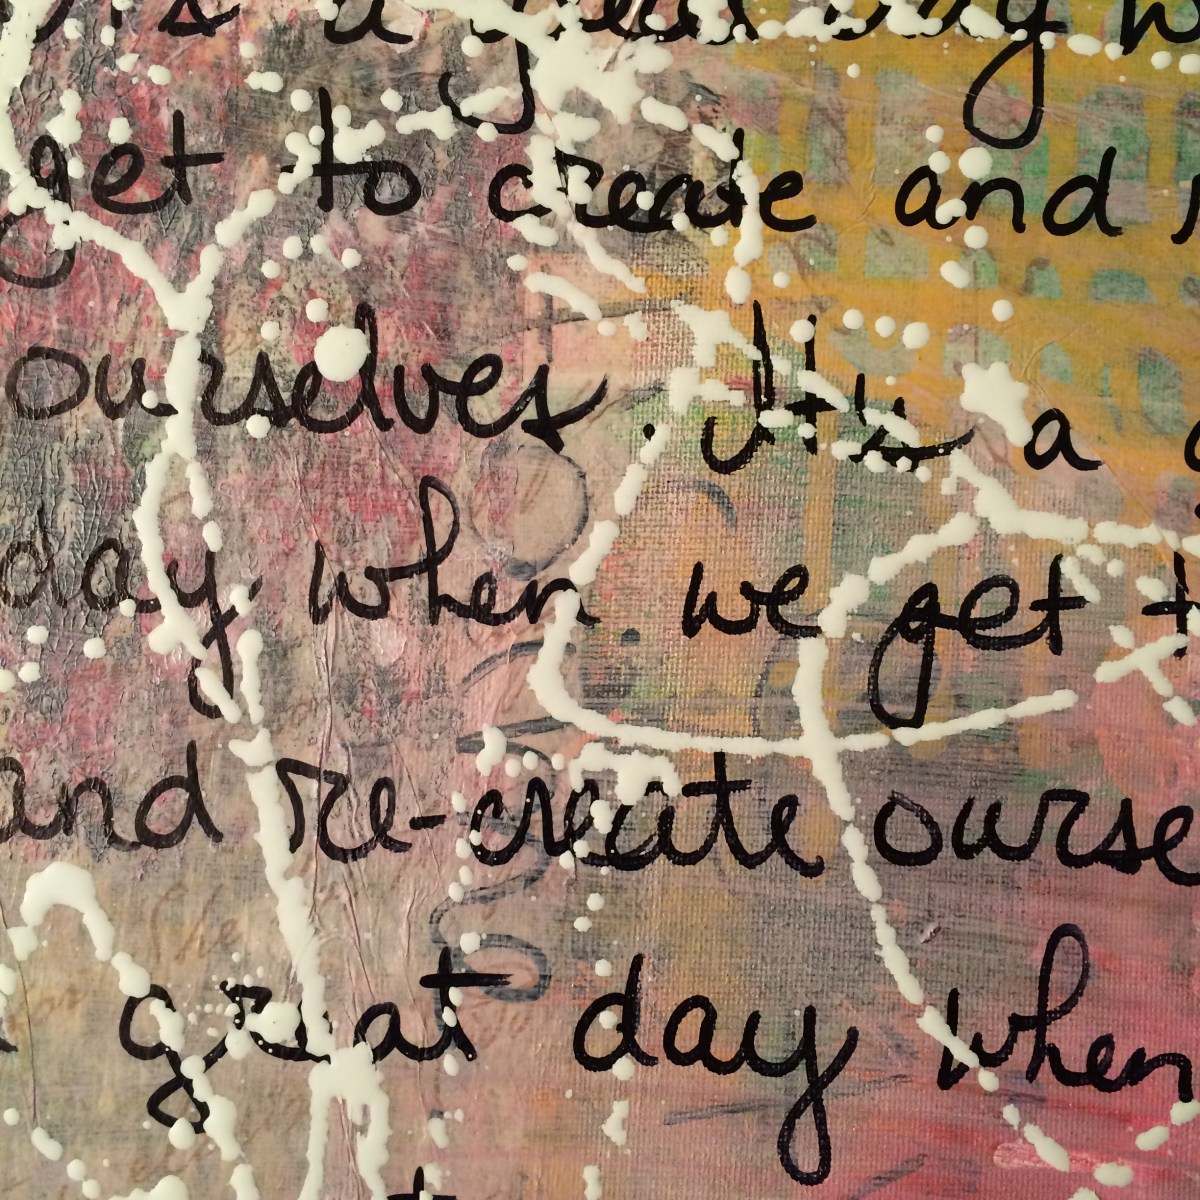 It's a great day w
get to create and r
ourselves. It's a g
day when we get t
and re-create ourse
a great day when
t